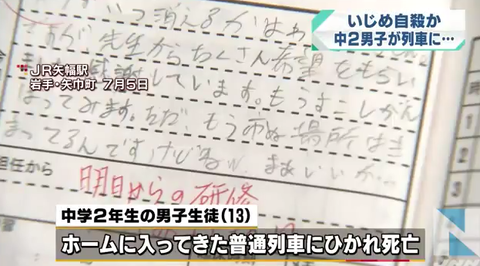 いじめ自殺か
中2男子が列車に…
JR矢幅駅
岩手・矢巾町 7月5日
いつ消えるかはわ
ですが、先生からたくさん希望をもらい
感謝しています。もうすこしがん
ばってみます。ただ、もう市ぬ場所はき
まってるんですけどね。まあいいか…
担任から
明日からの研修
中学2年生の男子生徒(13)
ホームに入ってきた普通列車にひかれ死亡